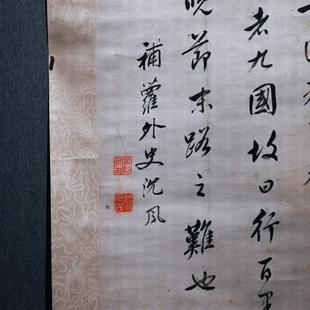 者九國故曰行百
晚節末路之難也
補蘿外史沈鳳